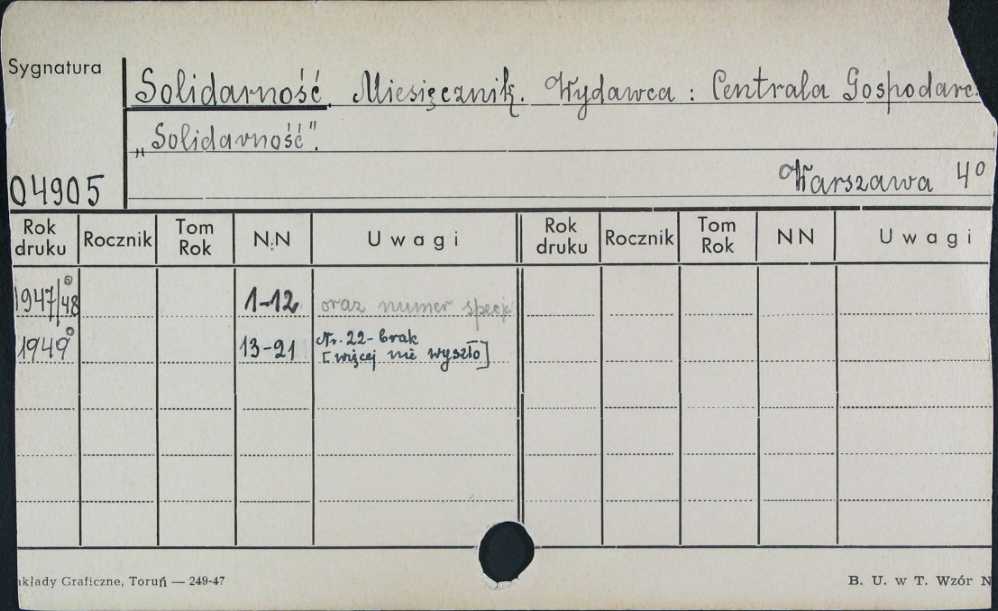 Sygnatura
Solidarność. Miesięcznik. Wydawca: Centrala Gospodarc.
„Solidarność".
04905
Warszawa 4°
Rok druku Rocznik Tom Rok N.N Uwagi Rok druku Rocznik Tom Rok NN Uwagi
1947/48° 1-12 oraz numer specj
1949° 13-21 Nr. 22- brak
[więcej nie wyszło]
akłady Graficzne, Toruń — 249-47 B. U. w T. Wzór N